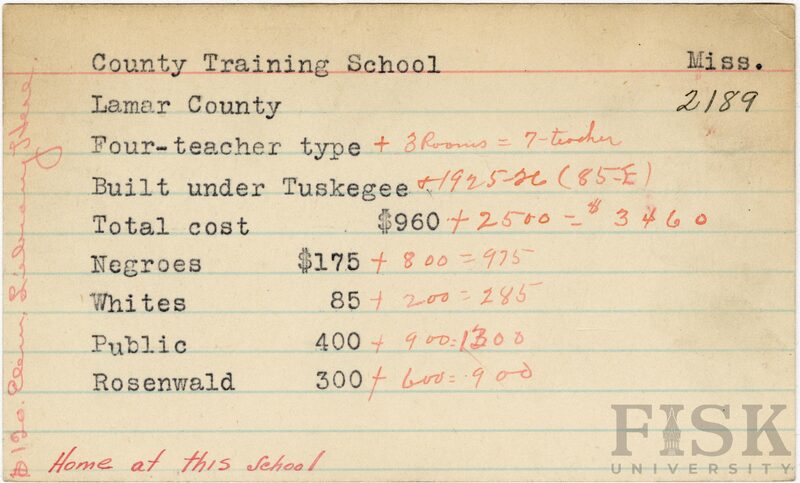 County Training School Miss.
Lamar County 2189
Four-teacher type + 3 Rooms = 7-teacher
Built under Tuskegee + 1925-26 (85-E)
Total cost $960 + 2500 = $3460
Negroes $175 + 800 = 975
Whites 85 + 200 = 285
Public 400 + 900 = 1300
Rosenwald 300 + 600 = 900
Home at this School
$120. Elem. Library
FISK
UNIVERSITY